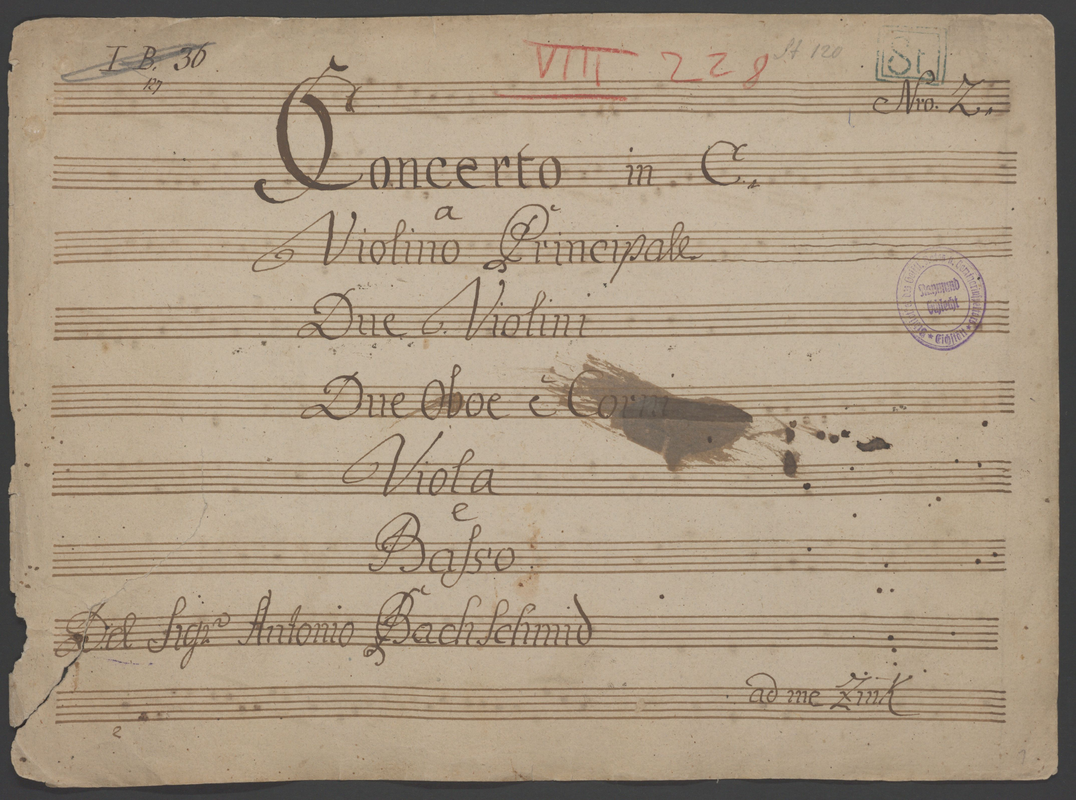 I B. 36
VIII 228
St 120
St
127
Nro. 2.
Concerto in C.
a
Violino Principale
Due Violini
Due Oboe è Corni
Viola
e
Baſso.
Del Sigre Antonio Bachschmid
ad me Zink
2
1